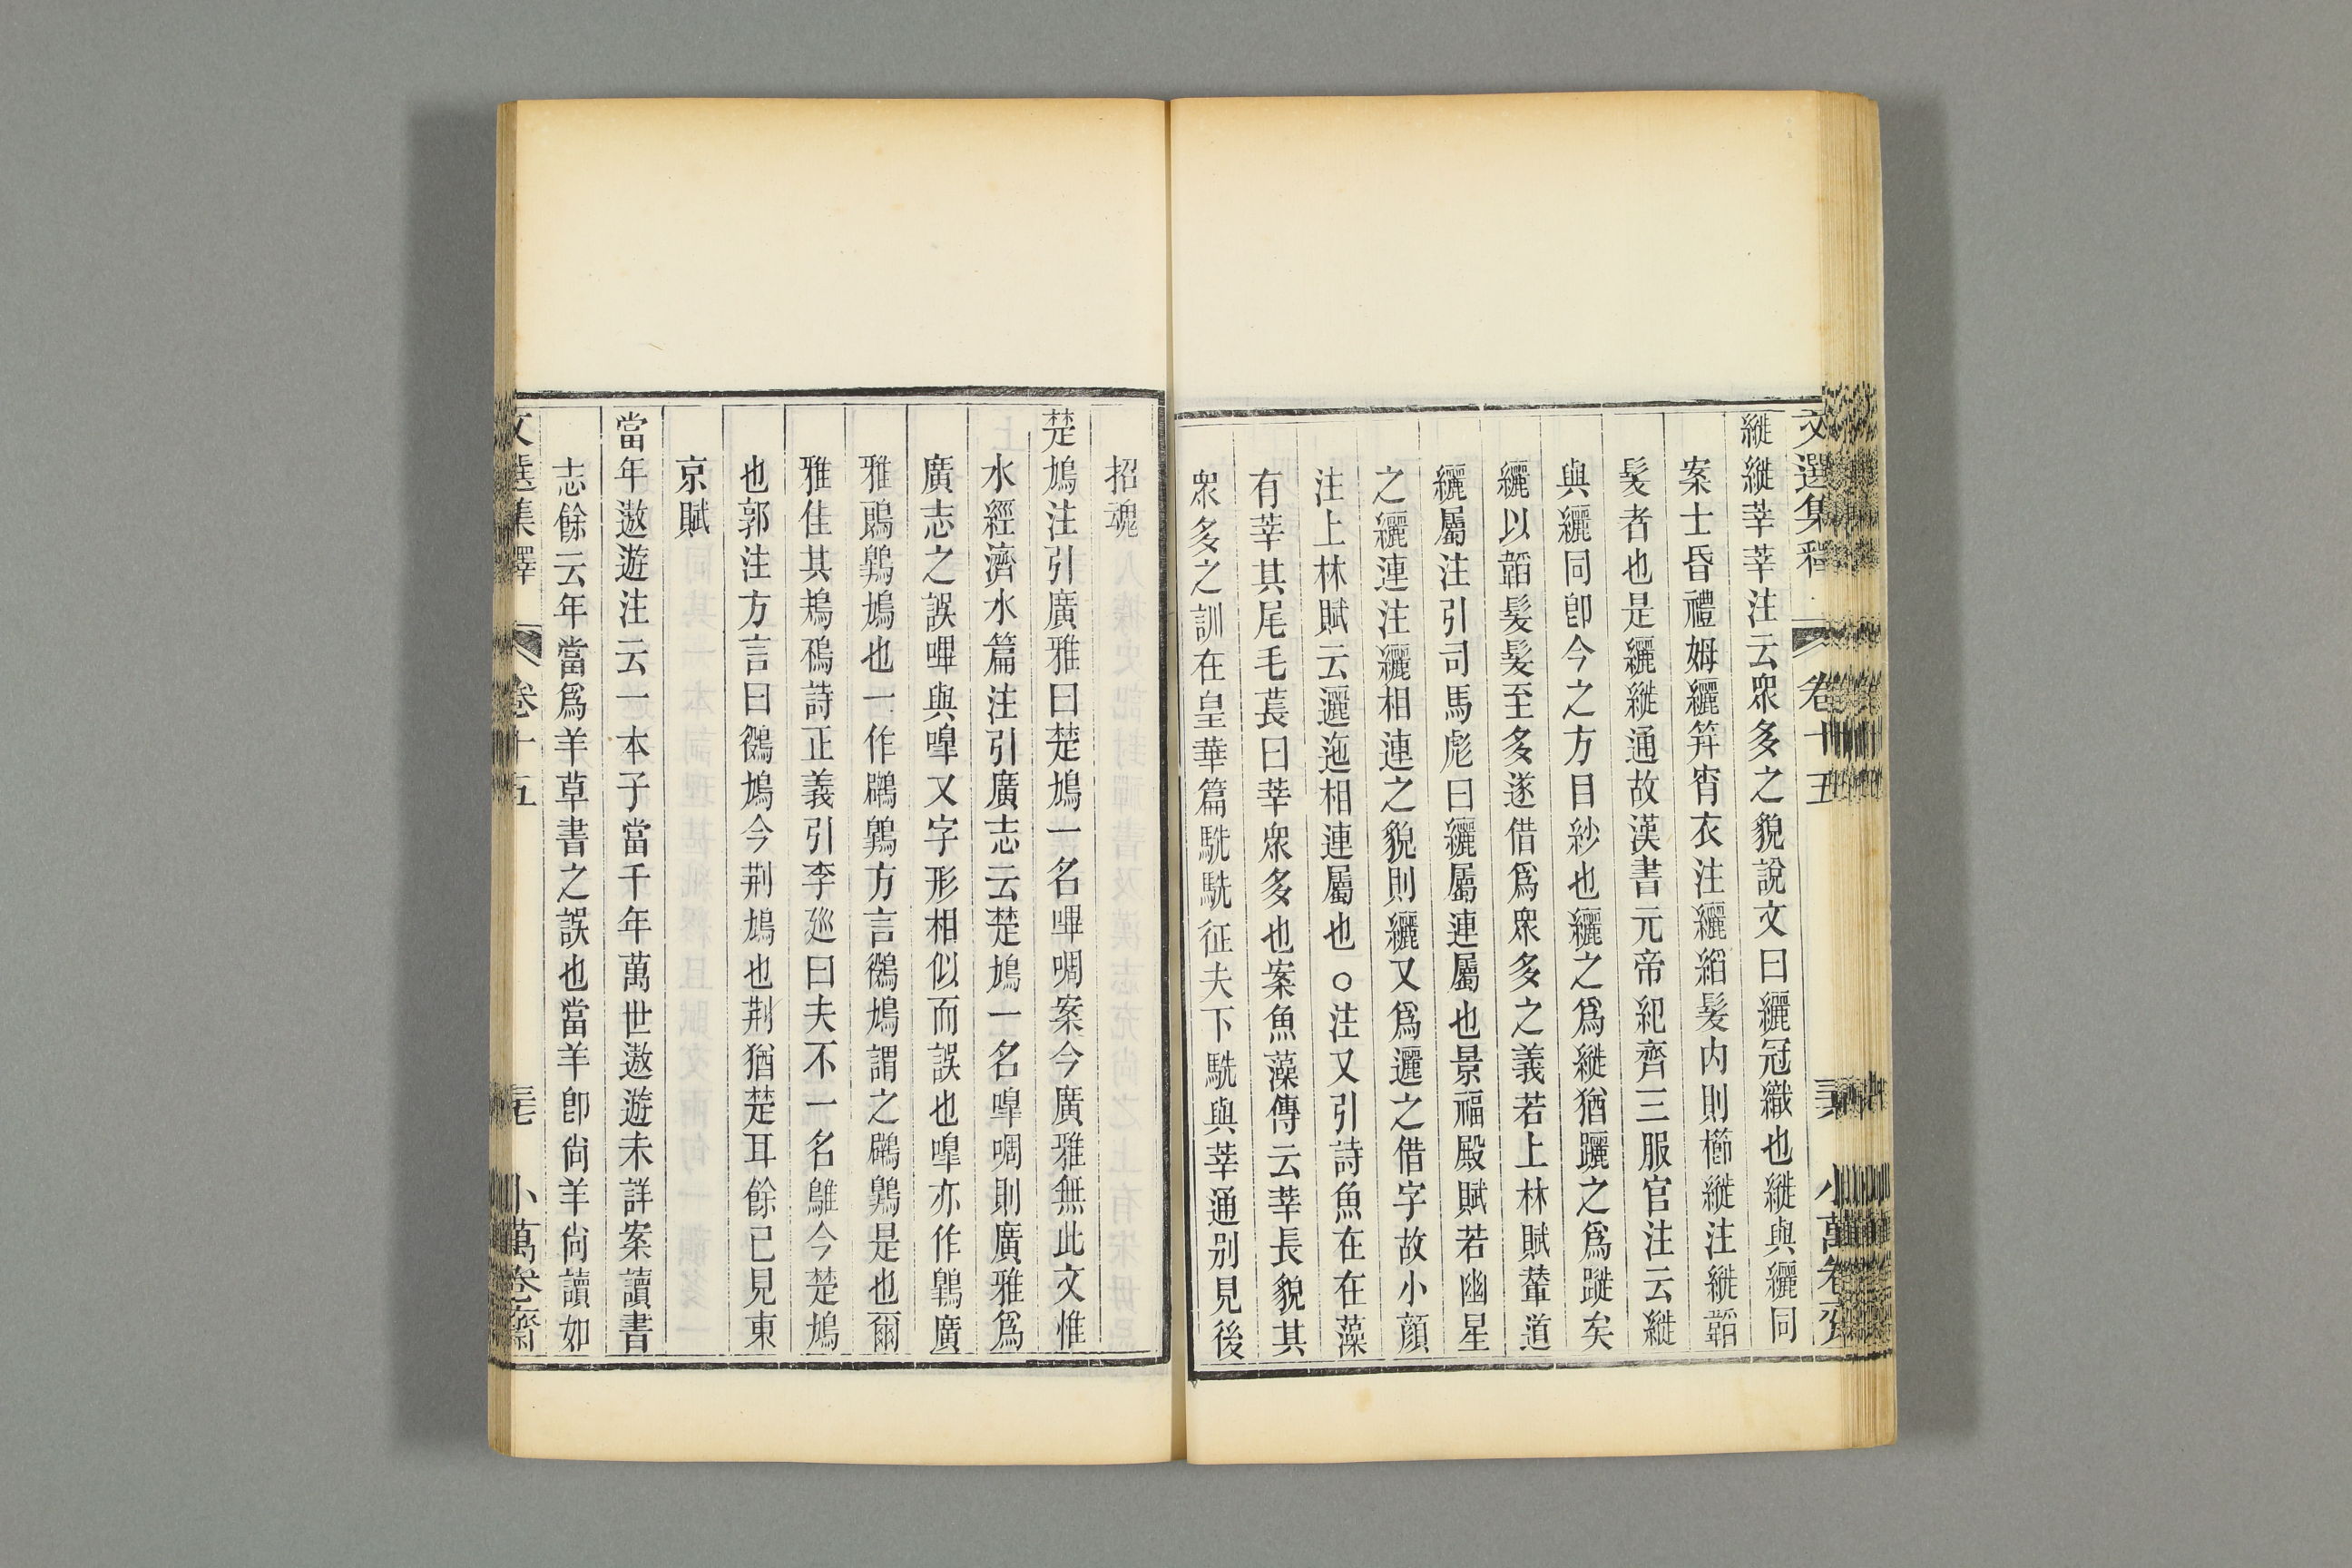 文選集釋 卷十五 小萬卷齋
縰縰莘莘注云眾多之貌說文曰纚冠織也縰與纚同
案士昏禮姆纚笄宵衣注纚縚髮内則櫛縰注縰韜
髮者也是纚縰通故漢書元帝紀齊三服官注云縰
與纚同卽今之方目紗也纚之爲縰猶躧之爲蹝矣
纚以韜髮髮至多遂借爲眾多之義若上林賦輦道
纚屬注引司馬彪曰纚屬連屬也景福殿賦若幽星
之纚連注纚相連之貌則纚又爲邐之借字故小顏
注上林賦云邐迆相連屬也○注又引詩魚在在藻
有莘其尾毛萇曰莘眾多也案魚藻傳云莘長貌其
眾多之訓在皇華篇駪駪征夫下駪與莘通别見後
招魂
楚鳩注引廣雅曰楚鳩一名嗶啁案今廣雅無此文惟
水經濟水篇注引廣志云楚鳩一名嘷啁則廣雅爲
廣志之誤嗶與嘷又字形相似而誤也嘷亦作鷎廣
雅鶌鷎鳩也一作鷿鷎方言鶌鳩謂之鷿鷎是也爾
雅隹其鳺鴀詩正義引李廵曰夫不一名鵻今楚鳩
也郭注方言曰鶌鳩今荆鳩也荆猶楚耳餘已見東
京賦
當年遨遊注云一本子當千年萬世遨遊未詳案讀書
志餘云年當爲羊草書之誤也當羊卽尙羊尙讀如
文選集釋 卷十五 小萬卷齋